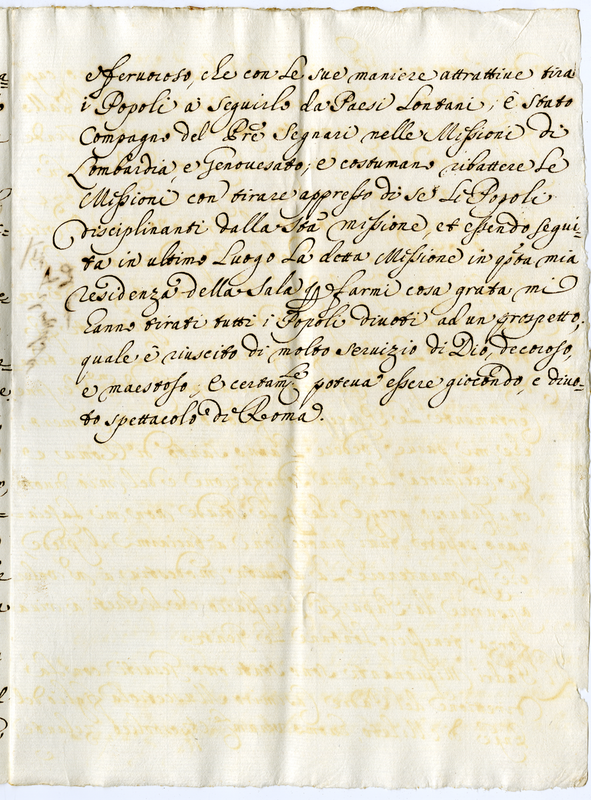 e fervoroso, che con Le sue maniere attrattive tira
i Popoli a seguirlo da Paesi Lontani; è stato
Compagno del Pre Segnari nelle Missioni di
Lombardia, e Genovesato; e costumano ribattere Le
Missioni con tirare appresso di se Li Popoli
disciplinanti dalla sta missione, et essendo segui-
ta in ultimo Luogo La detta Missione in qta mia
residenza della Sala farmi cosa grata mi
hanno tirati tutti i Popoli divoti ad un prospetto;
quale è riuscito di molto servizio di Dio, decoroso,
e maestoso; e certamte poteva essere giocondo, e divo-
to spettacolo di Roma.